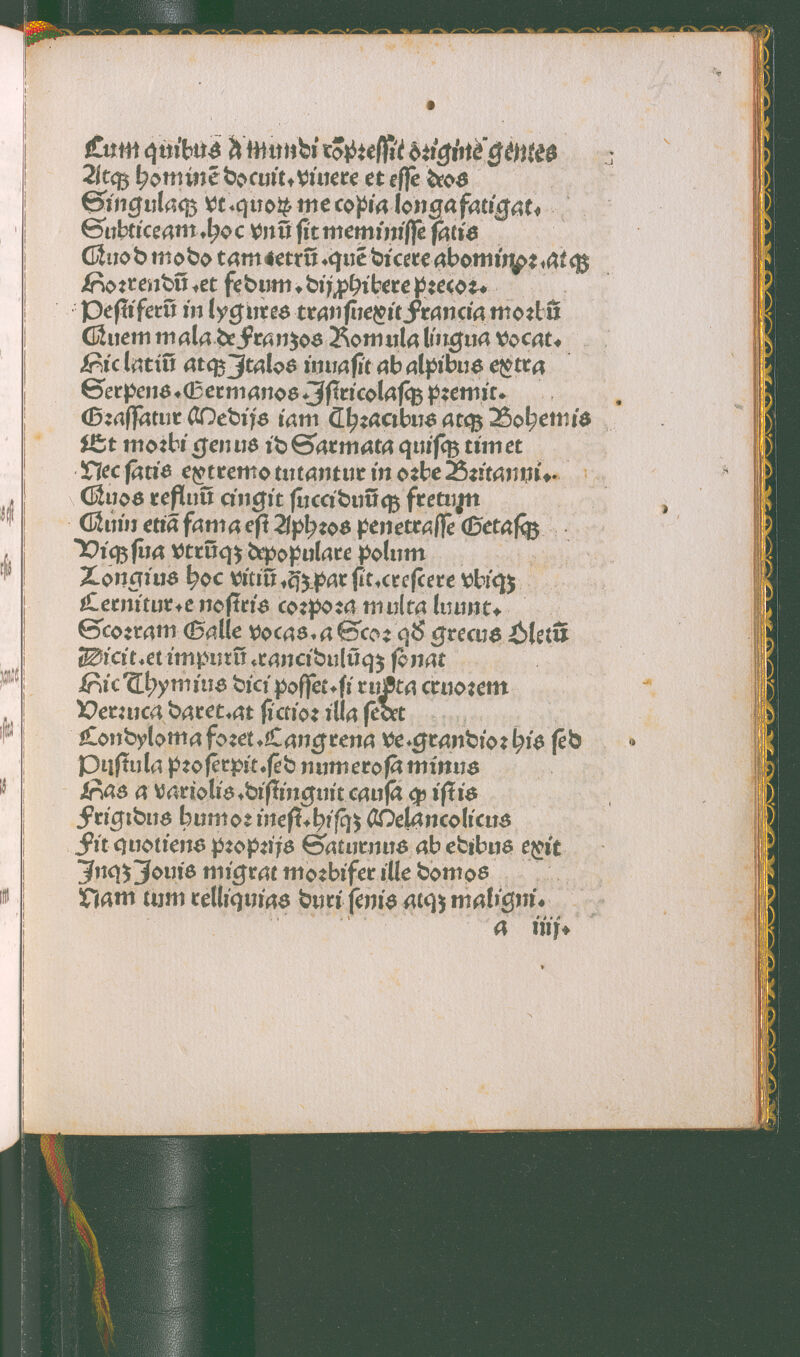 Cum quibus a mundi cõpressit origine gentes
Atqꝫ hominẽ docuit. viuere et esse deos
Singulaqꝫ vt. quoꝝ me copia longa fatigat.
Subticeam. hoc vnũ sit meminisse satis
Quod modo tam tetrũ. quẽ dicere abominor. atqꝫ
Horrendũ. et fedum. dij ꝓhibere precor.
Pestiferũ in lygures transuexit Francia morbũ
Quem mala de Franzos Romula lingua vocat.
Hic latiũ atqꝫ Italos inuasit ab alpibus extra
Serpens. Germanos. Istricolasqꝫ premit.
Grassatur Medijs iam Thracibus atqꝫ Bohemis
Et morbi genus id Sarmata quisqꝫ timet
Nec satis extremo tutantur in orbe Britanni.
Quos refluũ cingit succiduũqꝫ fretum
Quin etiã fama est Aphros penetrasse Getasqꝫ
Viqꝫ sua vtrũqꝫ depopulare polum
Longius hoc vitiũ. qꝫ̃ par sit. crescere vbiqꝫ
Cernitur. e nostris corpora multa luunt.
Scorram Galle vocas. a Scor qđ grecus Oletũ
Dicit. et impurũ. rancidulũqꝫ sonat
Hic Thymius dici posset. si rupta cruorem
Verruca daret. at sictior illa sedet
Condyloma foret. Cangrena ve. grandior his sed
Pustula proserpit. sed numerosa minus
Has a variolis. distinguit causa ꝙ istis
Frigidus humor inest. hisqꝫ Melancolicus
Fit quotiens proprijs Saturnus ab edibus exit
Inqꝫ Iouis migrat morbifer ille domos
Nam tum relliquias duri senis atqꝫ maligni.
a iiij.